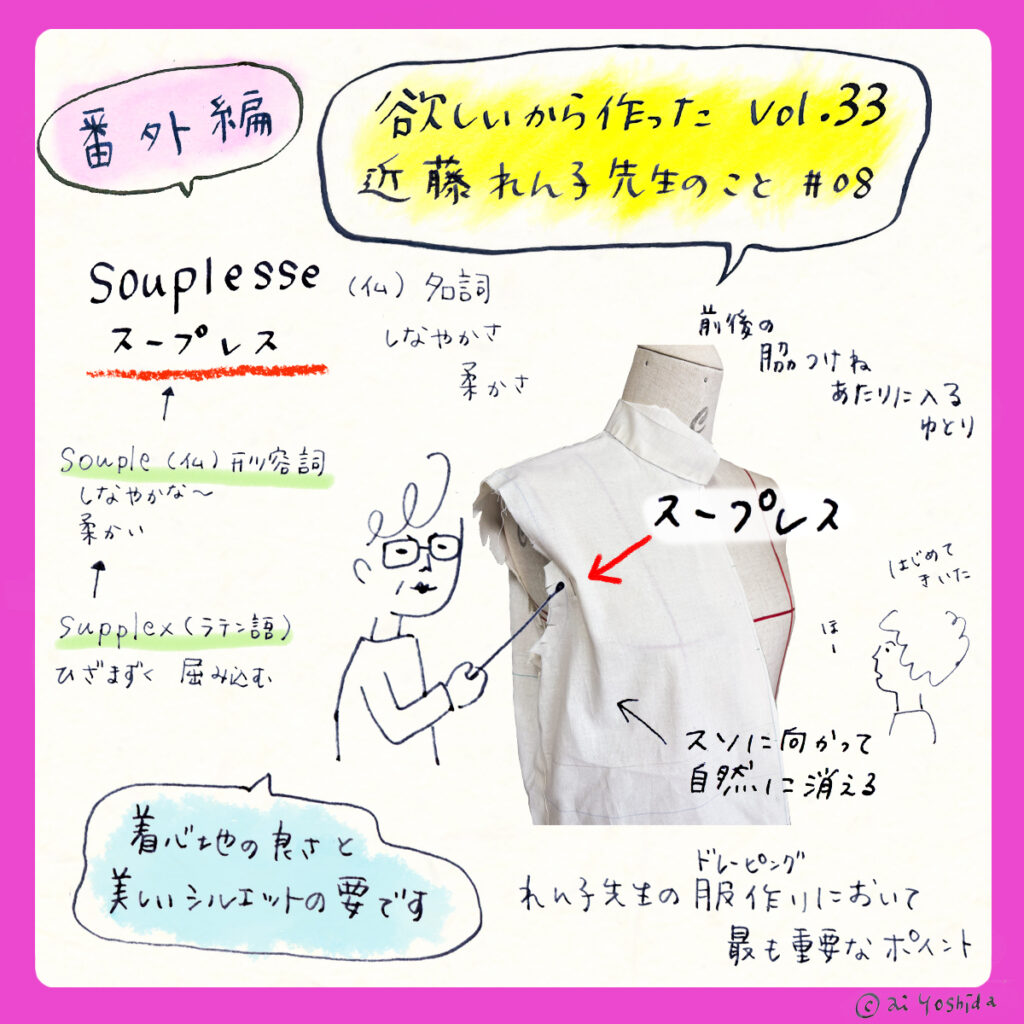 番外編
欲しいから作った vol.33
近藤れん子先生のこと #08
Souplesse (仏) 名詞
スープレス
しなやかさ
柔かさ
前後の
脇つけね
あたりに入る
ゆとり
Souple (仏) 形容詞
しなやかな〜
柔かい
Supplex (ラテン語)
ひざまずく 屈み込む
スープレス
はじめて
きいた
ほー
スソに向かって
自然に消える
着心地の良さと
美しいシルエットの要です
ドレーピング
れん子先生の服作りにおいて
最も重要なポイント
© ai Yoshida